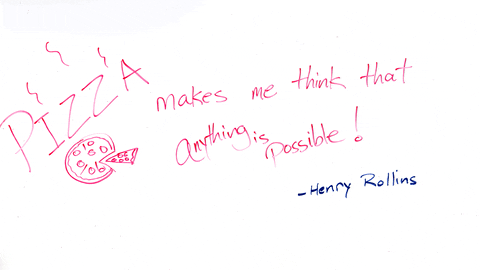 PIZZA makes me think that
anything is possible!
- Henry Rollins